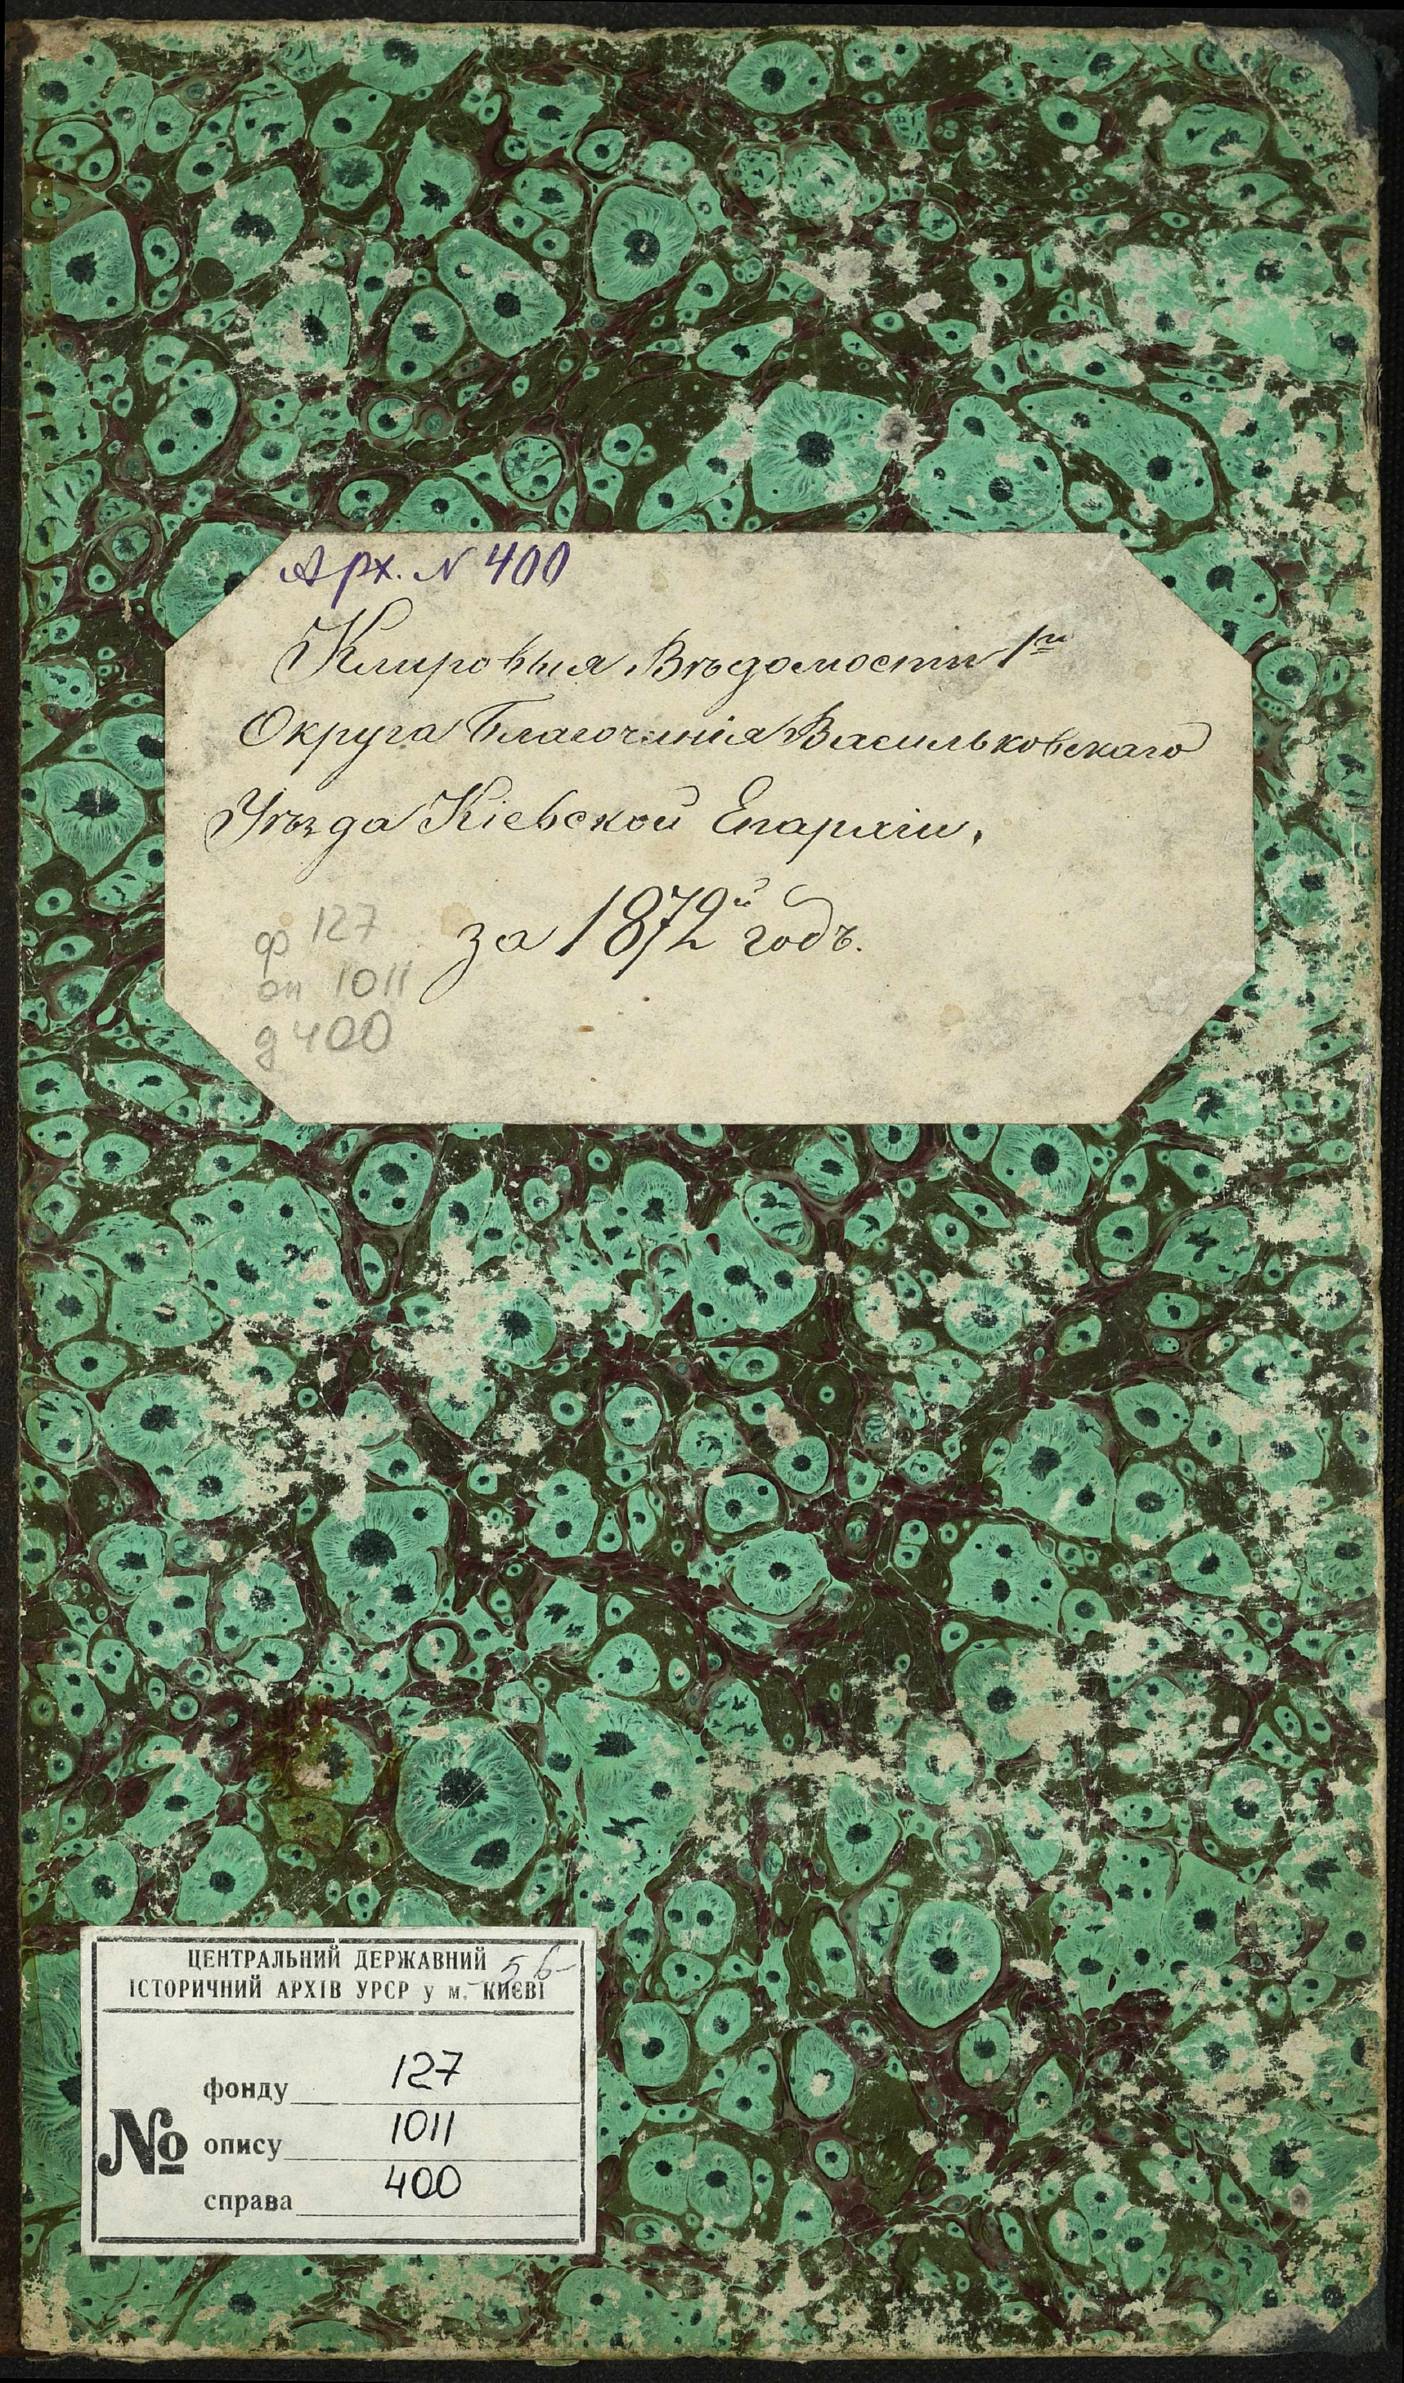 Арх. N 400
Клировыя Вѣдомости 1го
Округа Благочинія Васильковскаго
Уѣзда Кіевской Епархіи.
за 1872й годъ.
ф 127
оп 1011
д 400
ЦЕНТРАЛЬНИЙ ДЕРЖАВНИЙ
ІСТОРИЧНИЙ АРХІВ УРСР у м. КИЄВІ
фонду 127
№ опису 1011
справа 400